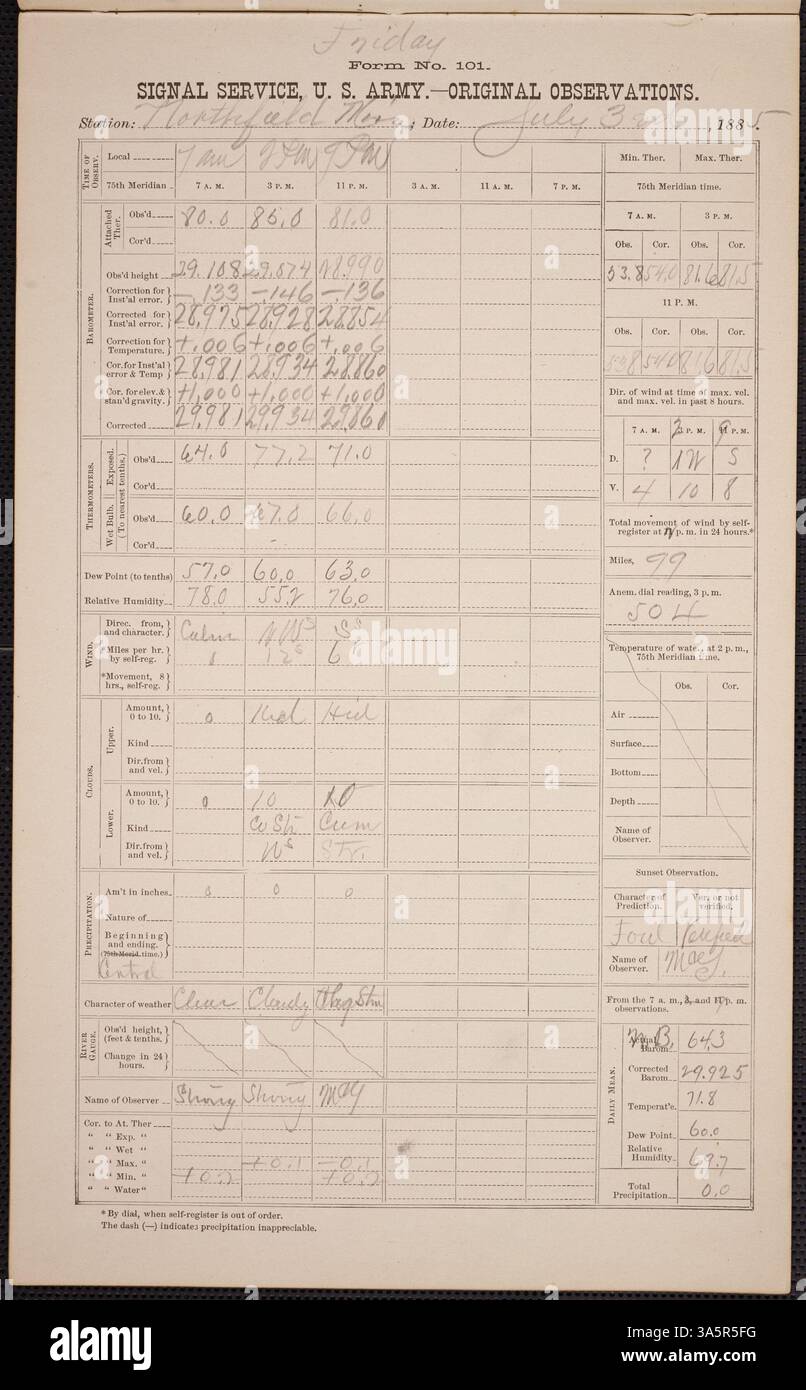 Friday
Form No. 101.
SIGNAL SERVICE, U. S. ARMY.—ORIGINAL OBSERVATIONS.
Station: Northfield Minn; Date: July 3, 1885.
TIME OF OBSERV. Local 7 am 3 PM 9 PM
75th Meridian 7 A. M. 3 P. M. 11 P. M. 3 A. M. 11 A. M. 7 P. M.
Attached Ther. Obs'd 80.0 85.0 81.0
Cor'd
BAROMETER.
Obs'd height 29.108 29.074 28.990
Correction for Inst'al error. -.133 -.146 -.136
Corrected for Inst'al error. 28.975 28.928 28.854
Correction for Temperature. +.006 +.006 +.006
Cor. for Inst'al error & Temp 28.981 28.934 28.860
Cor. for elev. & stan'd gravity. +1,000 +1,000 +1,000
Corrected 29.981 29.934 29.860
THERMOMETERS. (To nearest tenths.)
Exposed. Obs'd 64.0 77.2 71.0
Cor'd
Wet Bulb. Obs'd 60.0 67.0 66.0
Cor'd
Dew Point (to tenths) 57.0 60.0 63.0
Relative Humidity 78.0 55.2 76.0
WIND.
Direc. from, and character. Calm
*Miles per hr. by self-reg. 0 12 6
*Movement, 8 hrs., self-reg.
CLOUDS.
Upper. Amount, 0 to 10. 0 Hid Hid
Kind
Dir. from and vel.
Lower. Amount, 0 to 10. 0 10 10
Kind Cu Str Cum Str.
Dir. from and vel.
PRECIPITATION.
Am't in inches 0 0 0
Nature of
Beginning and ending. (75th Merid. time.)
Central
Character of weather Clear Cloudy
RIVER GAUGE.
Obs'd height, (feet & tenths.
Change in 24 hours.
Name of Observer
Cor. to At. Ther
" " Exp. "
" " Wet "
" " Max. " +0.1 -0.1
" " Min. " +0.2 +0.2
" " Water "
* By dial, when self-register is out of order.
The dash (—) indicates precipitation inappreciable.
Min. Ther. Max. Ther.
75th Meridian time.
7 A. M. 3 P. M.
Obs. Cor. Obs. Cor.
53.8 54.0 81.6 81.5
11 P. M.
Obs. Cor. Obs. Cor.
53.8 54.0 81.6 81.5
Dir. of wind at time of max. vel. and max. vel. in past 8 hours.
7 A. M. 3 P. M. 9 P. M.
D. ? NW S
V. 4 10 8
Total movement of wind by self-register at p. m. in 24 hours.*
Miles, 99
Anem. dial reading, 3 p. m.
504
Temperature of water, at 2 p. m., 75th Meridian time.
Obs. Cor.
Air
Surface
Bottom
Depth
Name of Observer.
Sunset Observation.
Character of Prediction. Ver. or not verified.
Foul Verified
Name of Observer.
From the 7 a. m., 3, and 11 p. m. observations.
DAILY MEAN.
Actual Barom. 64.3
Corrected Barom. 29.925
Temperat'e. 71.8
Dew Point 60.0
Relative Humidity 69.7
Total Precipitation 0.0
alamy
Image ID: 3A5R5FG
www.alamy.com